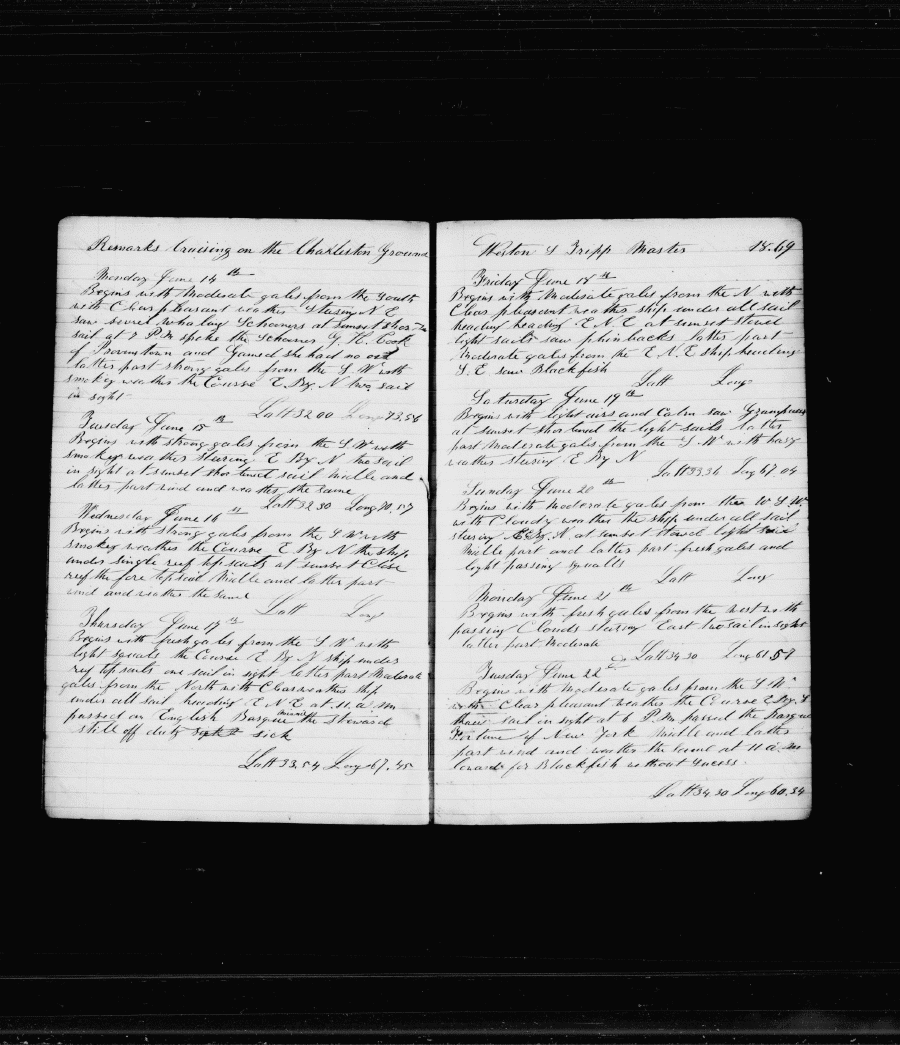 Remarks Cruising on the Charleston Ground
Monday June 14th
Begins with Moderate gales from the South
with Clear pleasant weather Stearing N E
saw several whaling Schooners at sunset shortn
sail at 8 P.M spoke the Schooner G. H. Cook
of Provinstown and Gamed she had no oil
latter part strong gales from the S W with
smokey weather the Course E. By. N two sail
in sight
Latt 32.00 Long 73.56
Tuesday June 15th
Begins with strong gales from the S W with
smokey weather stearing E By N two sail
in sight at sunset shortned sail middle and
latter part wind and weather the same
Latt 32.30 Long 70.57
Wednesday June 16th
Begins with strong gales from the S W with
smokey weather the Course E By N the ship
under single reef topsails at sunset Close
reef the fore topsail Middle and latter part
wind and weather the same
Latt Long
Thursday June 17th
Begins with fresh gales from the S W with
light squals the Course E By N ship under
reef topsails one sail in sight latter part Moderate
gales from the North with Clear weather ship
under all sail heading E N E at 11 a m
passed an English Barque the steward
still off duty sick
Latt 33.54 Long 67.45
Weston S Tripp Master 18.69
Friday June 18th
Begins with Moderate gales from the N with
Clear pleasant weather ship under all sail
heading heading E N E at sunset stowed
light sails saw phinbacks latter part
Moderate gales from the E N E ship heading
S. E saw Blackfish
Latt Long
Saturday June 19th
Begins with light airs and Calm saw Grampuses
at sunset shortned the light sails latter
part Moderate gales from the S W with hazy
weather stearing E By N
Latt 33.36 Long 67.04
Sunday June 20th
Begins with moderate gales from the W S W.
with Cloudy weather the ship under all sail
stearing E By N at sunset stowed light sails
Midle part and latter part fresh gales and
light passing squalls
Latt Long
Monday June 21th
Begins with fresh gales from the west with
passing Clouds stearing East two sail in sight
latter part Moderate
Latt 34.30 Long 61.59
Tuesday June 22
Begins with Moderate gales from the S W
with Clear pleasant weather the Course E By S
three sail in sight at 6 P.M passed the Barque
Fortune of New York Middle and latter
part wind and weather the same at 11 a. m
lowered for Blackfish without sucess.
Latt 34.30 Long 60.34